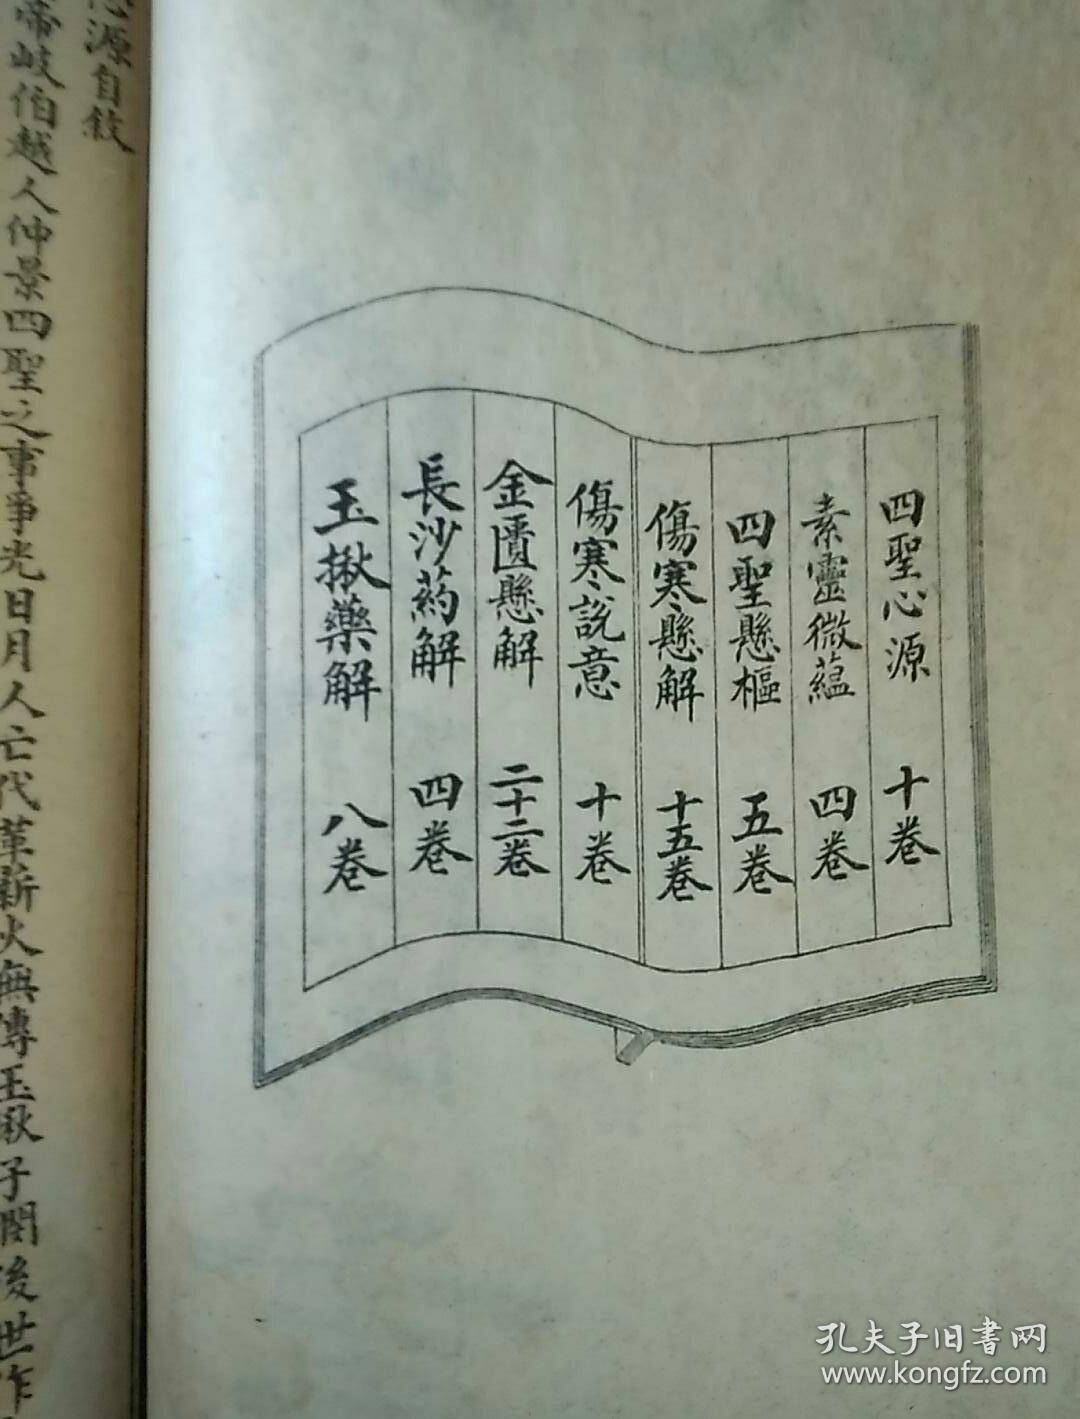 四聖心源 十卷
素靈微蘊 四卷
四聖懸樞 五卷
傷寒懸解 十五卷
傷寒說意 十卷
金匱懸解 二十二卷
長沙葯解 四卷
玉揪藥解 八卷
源自敘
帝岐伯越人仲景四聖之事爭光日月人亡代革薪火無傳玉楸子閔後世作
孔夫子旧書网
www.kongfz.com